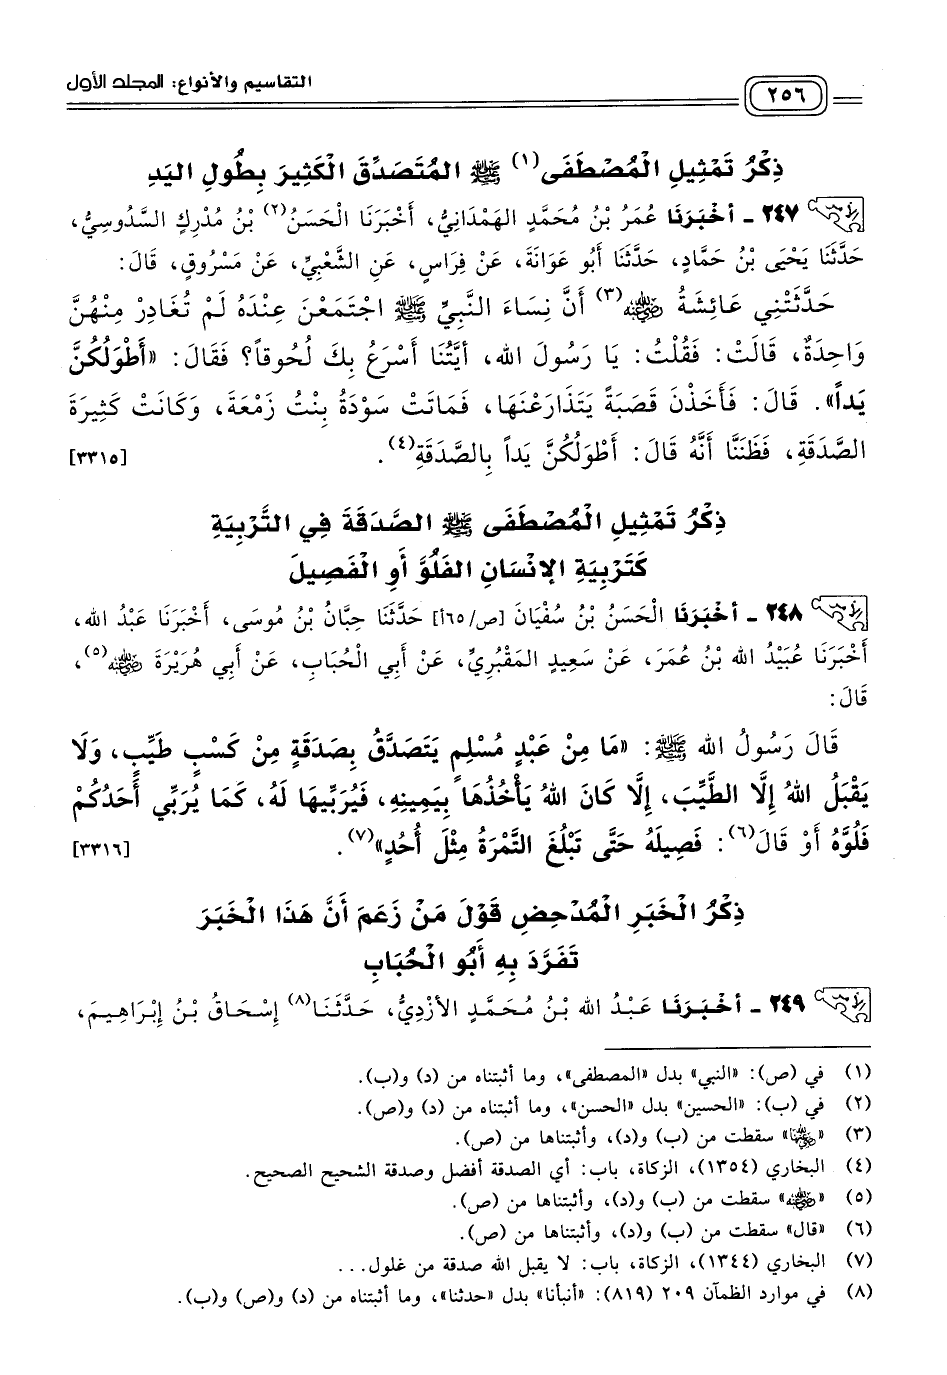 التقاسيم والأنواع: المجلد الأول
٢٥٦
ذِكْرُ تَمْثِيلِ الْمُصْطَفَى(١) ﷺ الْمُتَصَدِّقَ الْكَثِيرَ بِطُولِ الْيَدِ
٢٤٧ - أخْبَرَنَا عُمَرُ بْنُ مُحَمَّدٍ الهَمْدَانِيُّ، أَخْبَرَنَا الْحَسَنُ(٢) بْنُ مُدْرِكٍ السَّدُوسِيُّ،
حَدَّثَنَا يَحْيَى بْنُ حَمَّادٍ، حَدَّثَنَا أَبُو عَوَانَةَ، عَنْ فِرَاسٍ، عَنِ الشَّعْبِيِّ، عَنْ مَسْرُوقٍ، قَالَ:
حَدَّثَتْنِي عَائِشَةُ ﵂(٣) أَنَّ نِسَاءَ النَّبِيِّ ﷺ اجْتَمَعْنَ عِنْدَهُ لَمْ تُغَادِرْ مِنْهُنَّ
وَاحِدَةٌ، قَالَتْ: فَقُلْتُ: يَا رَسُولَ الله، أَيَّتُنَا أَسْرَعُ بِكَ لُحُوقاً؟ فَقَالَ: «أَطْوَلُكُنَّ
يَداً». قَالَ: فَأَخَذْنَ قَصَبَةً يَتَذَارَعْنَهَا، فَمَاتَتْ سَوْدَةُ بِنْتُ زَمْعَةَ، وَكَانَتْ كَثِيرَةَ
الصَّدَقَةِ، فَظَنَنَّا أَنَّهُ قَالَ: أَطْوَلُكُنَّ يَداً بِالصَّدَقَةِ(٤). [٣٣١٥]
ذِكْرُ تَمْثِيلِ الْمُصْطَفَى ﷺ الصَّدَقَةَ فِي التَّرْبِيَةِ
كَتَرْبِيَةِ الإنْسَانِ الفَلُوَّ أَوِ الْفَصِيلَ
٢٤٨ - أخْبَرَنَا الْحَسَنُ بْنُ سُفْيَانَ [ص/٦٥أ] حَدَّثَنَا حِبَّانُ بْنُ مُوسَى، أَخْبَرَنَا عَبْدُ الله،
أَخْبَرَنَا عُبَيْدُ الله بْنُ عُمَرَ، عَنْ سَعِيدٍ المَقْبُرِيِّ، عَنْ أَبِي الْحُبَابِ، عَنْ أَبِي هُرَيْرَةَ ﵁(٥)،
قَالَ:
قَالَ رَسُولُ الله ﷺ: «مَا مِنْ عَبْدٍ مُسْلِمٍ يَتَصَدَّقُ بِصَدَقَةٍ مِنْ كَسْبٍ طَيِّبٍ، وَلَا
يَقْبَلُ اللهُ إِلَّا الطَّيِّبَ، إِلَّا كَانَ اللهُ يَأْخُذُهَا بِيَمِينِهِ، فَيُرَبِّيهَا لَهُ، كَمَا يُرَبِّي أَحَدُكُمْ
فَلُوَّهُ أَوْ قَالَ(٦): فَصِيلَهُ حَتَّى تَبْلُغَ التَّمْرَةُ مِثْلَ أُحُدٍ»(٧). [٣٣١٦]
ذِكْرُ الْخَبَرِ الْمُدْحِضِ قَوْلَ مَنْ زَعَمَ أَنَّ هَذَا الْخَبَرَ
تَفَرَّدَ بِهِ أَبُو الْحُبَابِ
٢٤٩ - أخْبَرَنَا عَبْدُ الله بْنُ مُحَمَّدٍ الأَزْدِيُّ، حَدَّثَنَا(٨) إِسْحَاقُ بْنُ إِبْرَاهِيمَ،
(١) في (ص): «النبي» بدل «المصطفى»، وما أثبتناه من (د) و(ب).
(٢) في (ب): «الحسين» بدل «الحسن»، وما أثبتناه من (د) و(ص).
(٣) «﵂» سقطت من (ب) و(د)، وأثبتناها من (ص).
(٤) البخاري (١٣٥٤)، الزكاة، باب: أي الصدقة أفضل وصدقة الشحيح الصحيح.
(٥) «﵁» سقطت من (ب) و(د)، وأثبتناها من (ص).
(٦) «قال» سقطت من (ب) و(د)، وأثبتناها من (ص).
(٧) البخاري (١٣٤٤)، الزكاة، باب: لا يقبل الله صدقة من غلول...
(٨) في موارد الظمآن ٢٠٩ (٨١٩): «أنبأنا» بدل «حدثنا»، وما أثبتناه من (د) و(ص) و(ب).